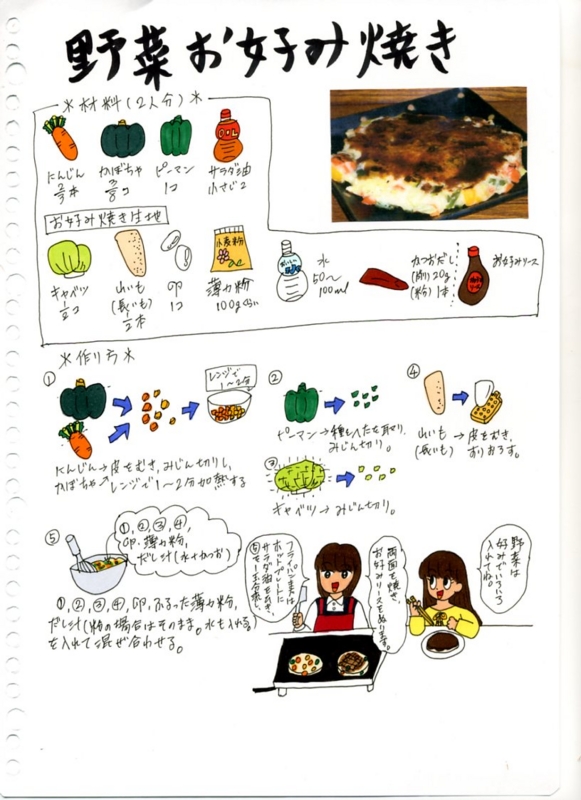 野菜お好み焼き
＊材料(2人分)＊
にんじん
2/3本
かぼちゃ
3/8コ
ピーマン
1コ
OIL
サラダ油
小さじ2
お好み焼き生地
キャベツ
1/2コ
山いも
(長いも)
1/2本
卵
1コ
小麦粉
薄力粉
100gぐらい
水
50〜
100ml
かつおだし
(削)20g
(粉)1本
お好みソース
＊作り方＊
①
レンジで
1〜2分
にんじん→皮をむき、みじん切りし、
かぼちゃ↗レンジで1〜2分加熱する
②
ピーマン→種とヘタを取り、
みじん切り。
③
キャベツ→みじん切り。
④
山いも→皮をむき、
(長いも) すりおろす。
⑤
①,②,③,④,
卵、薄力粉、
だし汁(水+かつお)
①,②,③,④,卵,ふるった薄力粉,
だし汁(粉の場合はそのまま。水も入れる)
を入れて混ぜ合わせる。
フライパン又は
ホットプレートに
サラダ油をぬき、
⑤を一玉分流し、
両面を焼き、
お好みソースをぬります。
野菜は
好みでいろいろ
入れてね